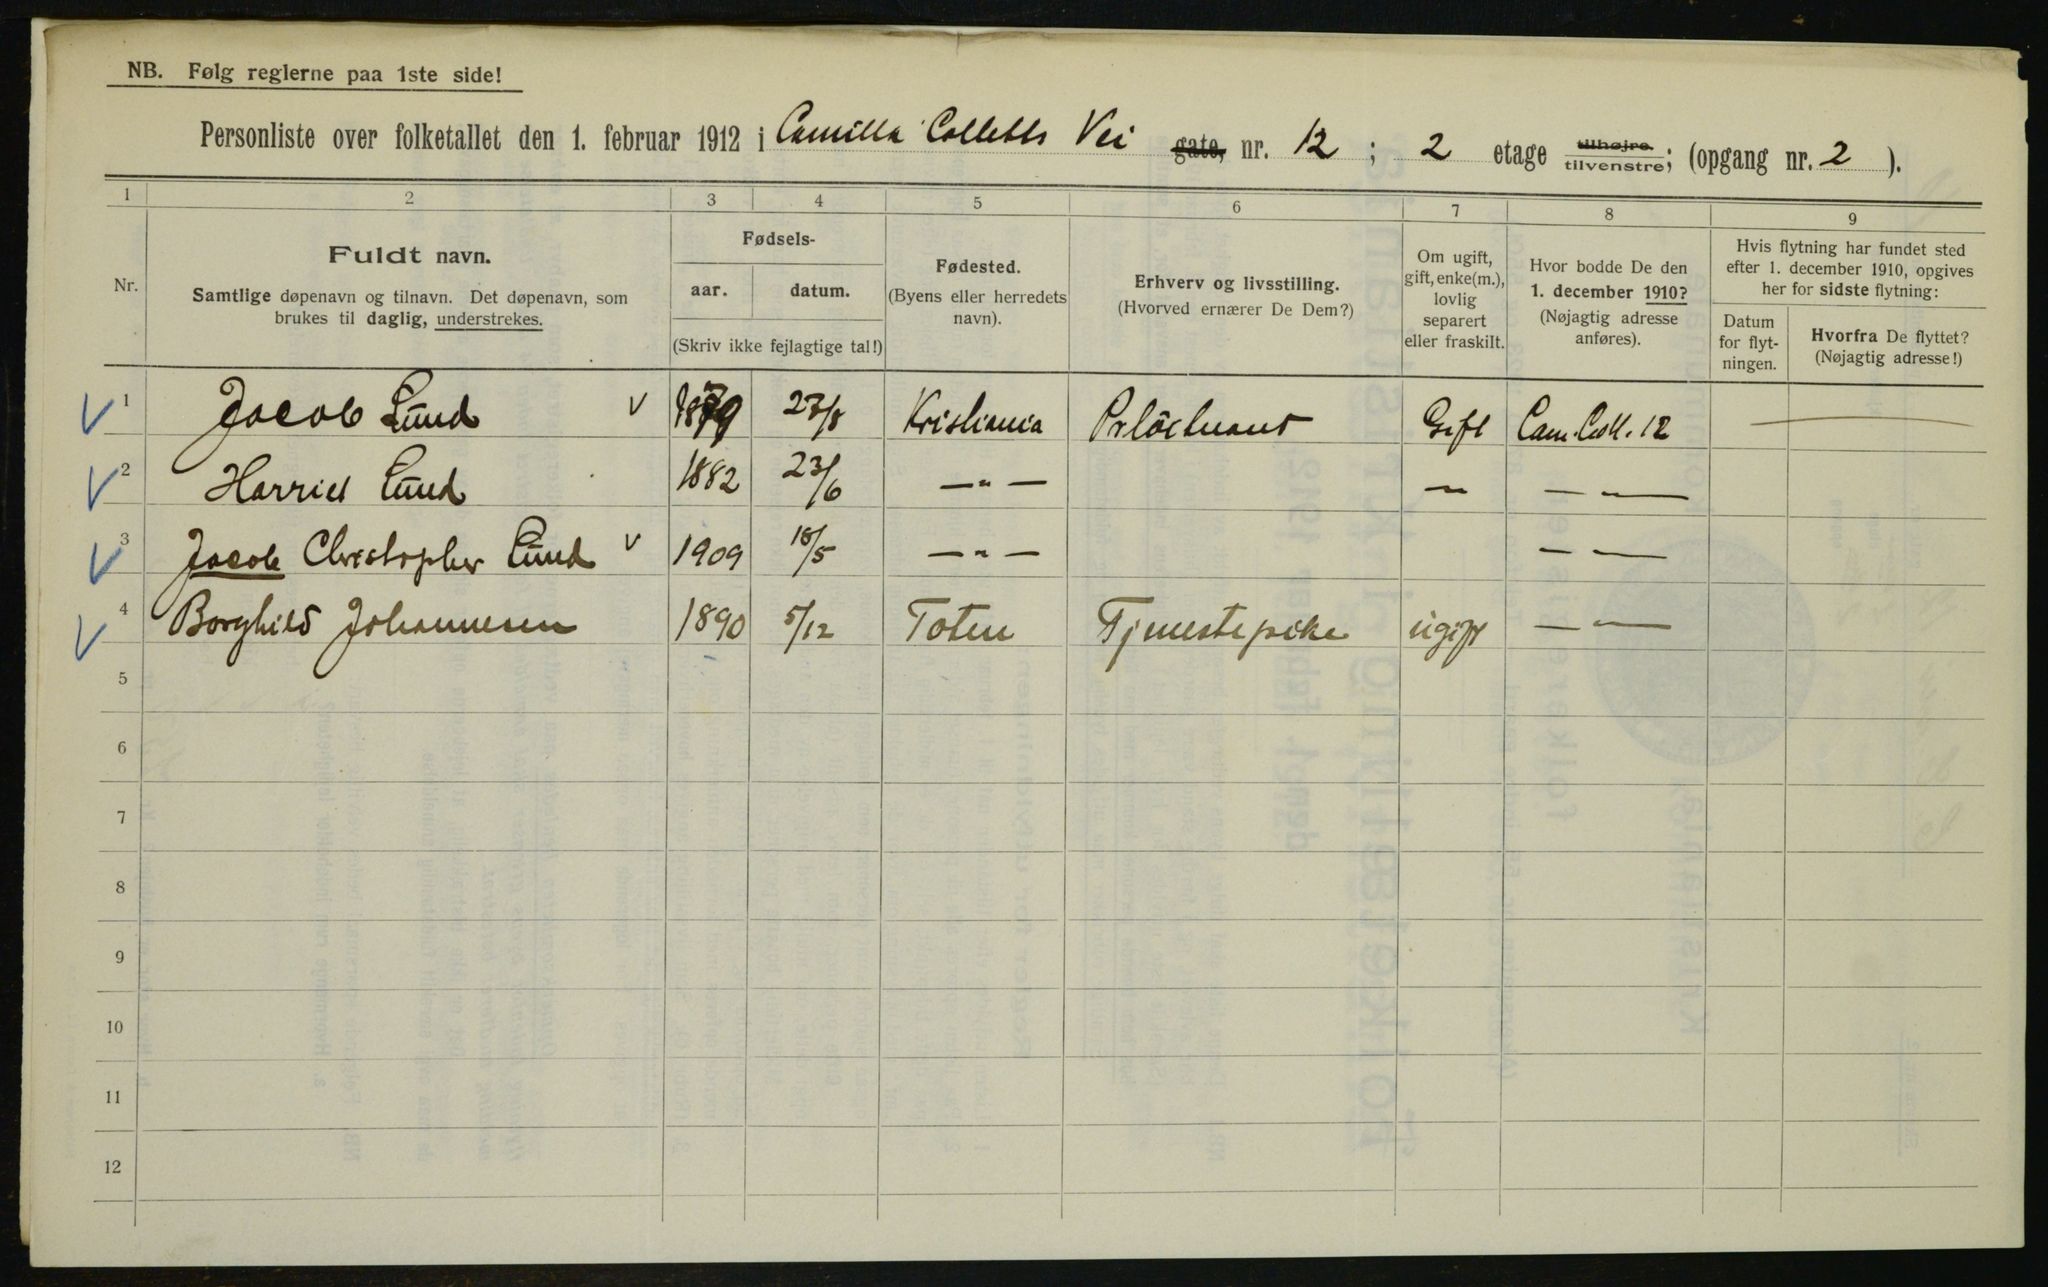 NB. Følg reglerne paa 1ste side!
Personliste over folketallet den 1. februar 1912 i Camilla Colletts Vei gate, nr. 12 ; 2 etage tilhøjre tilvenstre; (opgang nr. 2 ).
1 2 3 4 5 6 7 8 9
Nr.
Fuldt navn.
Samtlige døpenavn og tilnavn. Det døpenavn, som
brukes til daglig, understrekes.
Fødsels-
aar. datum.
(Skriv ikke fejlagtige tal!)
Fødested.
(Byens eller herredets
navn).
Erhverv og livsstilling.
(Hvorved ernærer De Dem?)
Om ugift,
gift, enke(m.),
lovlig
separert
eller fraskilt.
Hvor bodde De den
1. december 1910?
(Nøjagtig adresse
anføres).
Hvis flytning har fundet sted
efter 1. december 1910, opgives
her for sidste flytning:
Datum
for flyt-
ningen.
Hvorfra De flyttet?
(Nøjagtig adresse!)
1 Jacob Lund v 1879 27/8 Kristiania Gift Cam. Coll. 12 —
2 Harriet Lund 1882 23/6 — „ — — — „ —
3 Jacob Christopher Lund v 1909 18/5 — „ — — „ —
4 Borghild Johannesen 1890 5/12 Toten Tjenestepike ugift — „ —
5
6
7
8
9
10
11
12